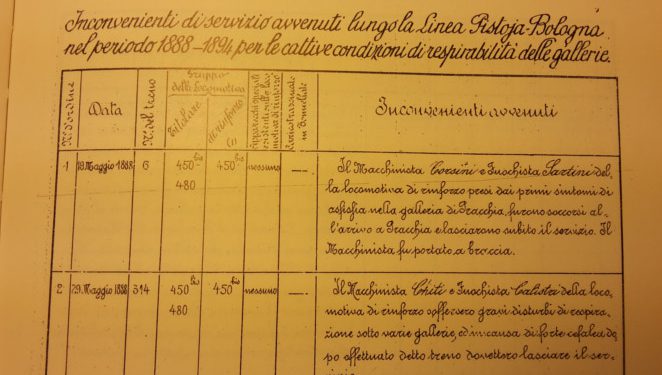 Inconvenienti di servizio avvenuti lungo la Linea Pistoja-Bologna
nel periodo 1888-1894 per le cattive condizioni di respirabilità delle gallerie.
N° d'ordine
Data
N° del treno
Gruppo della locomotiva
titolare
di rinforzo
(1)
Apparecchi speciali esistenti sulla locomotiva di rinforzo
in tonnellate
Inconvenienti avvenuti
1
18 Maggio 1888
6
450 bis
480
450 bis
nessuno
—
Il Macchinista Corsini e Fuochista Sartini del-
la locomotiva di rinforzo presi dai primi sintomi di
asfissia nella galleria di Pracchia, furono soccorsi al-
l'arrivo a Pracchia e lasciarono subito il servizio. Il
Macchinista fu portato a braccia.
2
29 Maggio 1888
314
450 bis
480
450 bis
nessuno
—
Il Macchinista Chiti e Fuochista Calistri della loco-
motiva di rinforzo soffersero gravi disturbi di respira-
zione sotto varie gallerie, ed in causa di forte cefalea do-
po effettuato detto treno dovettero lasciare il ser-